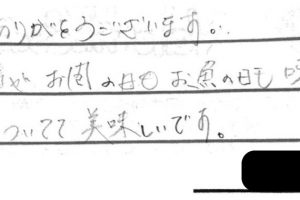 りがとうございます。
お肉の日もお魚の日も
ついてて美味しいです。